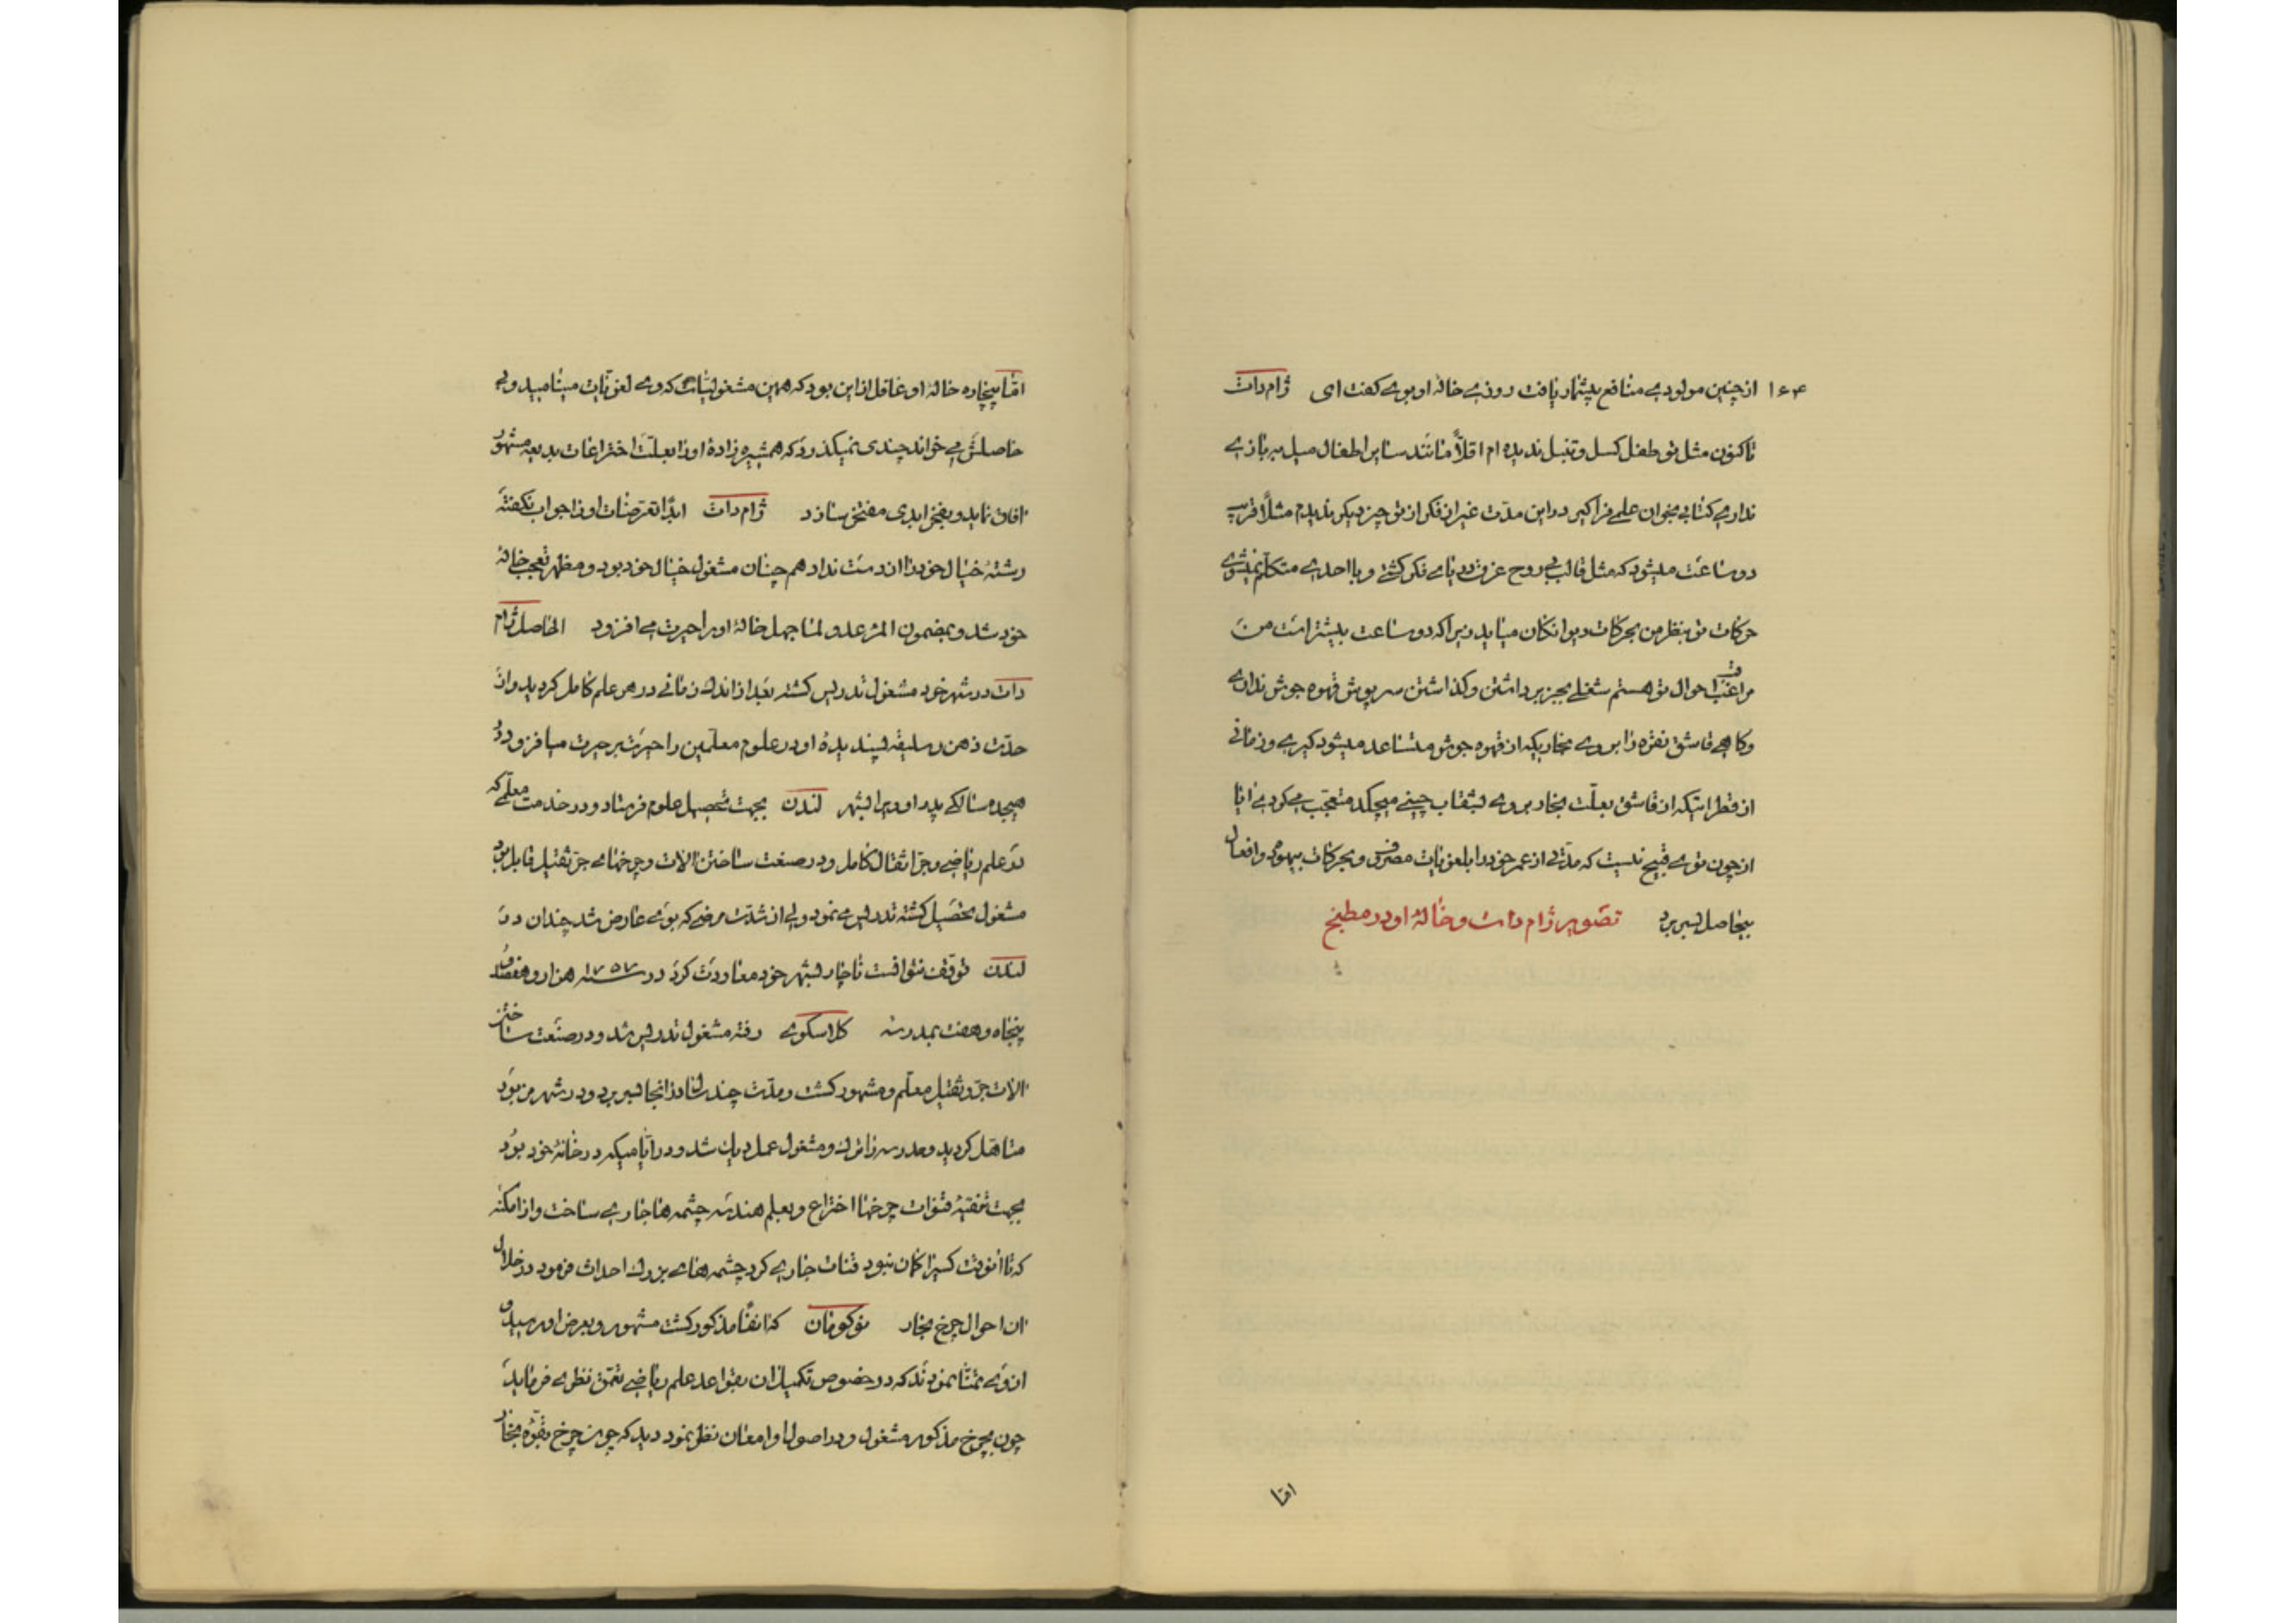 ۱۶۴ از چنین مولودی منافع بیشمار یافت روزی خالهٔ او بوی گفت ای ژام دات
تاکنون مثل تو طفل کسل و تنبل ندیده ام اقلاً مانند سایر اطفال میل ببازی
نداری کتابی بخوان علمی فراگیر در این مدّت غیر از فکر از تو چیز دیگر ندیدم مثلاً قریب
دو ساعت میشود که مثل قالب بی روح غرق دریای فکر گشتی و با احدی متکلّم نمیشوی
حرکات تو بنظر من بحرکات دیوانگان میاید زیرا که دو ساعت بیشتر است من
مراقب احوال تو هستم شغلی بجز برداشتن و گذاشتن سرپوش قهوه جوش نداری
و گاهی قاشق نقره را بروی بخاریکه از قهوه جوش متصاعد میشود گیری و زمانی
از قطراتیکه از قاشق بعلّت بخار بروی بشقاب چینی میچکد متعجّب میگردی ایا
از چون توی قبیح نیست که مدّتی از عمر خود را بلغویات مصروف و بحرکات بیهوده و افعال
بیحاصل بسر برد تصویر ژام دات و خالهٔ او در مطبخ
امّا
امّا بیچاره خالهٔ او غافل از این بود که همین مشغولیّات که وی لغویّات مینامید و بی
حاصلش میخواند چندی نمیگذرد که همشیره زادهٔ او را بعلّت اختراعات بدیعه مشهور
افاق نماید و بفخر ابدی مفتخر سازد ژام دات ابداً تعرّضات او را جواب نگفته
رشتهٔ خیال خود را از دست نداد همچنان مشغول خیال خود بود و مظهر تعجّب خالهٔ
خود شد و بمضمون المرء عدو لما جهل خالهٔ او را حیرت می افزود الحاصل ژام
دات در شهر خود مشغول تدریس گشته بعد از اندک زمانی در هر علم کامل گردید و از
حدّت ذهن و سلیقه پسندیدهٔ او در علوم معلّمین را حیرت بر حیرت میافزود در
هیجده سالگی پدر او ویرا بشهر لندن بجهت تحصیل علوم فرستاد و در خدمت معلّمی که
در علم ریاضی و جرّ اثقال کامل و در صنعت ساختن الات و چرخهای جرّ ثقیل قابل بود
مشغول تحصیل گشته تدریس می نمود ولی از شدّت مرضی که بوی عارض شد چندان در
لندن توقّف نتوانست ناچار بشهر خود معاودت کرد در سنه ۱۷۵۷ هزار و هفتصد و
پنجاه و هفت بمدرسهٔ کلاسکوی رفته مشغول تدریس شد و در صنعت ساختن
الات جرّ و ثقیل معلّم و مشهور گشت و مدّت چند سال در انجا بسر برد و در شهر مزبور
متاهّل گردید و مدرسه را ترک و مشغول عمل دیگر شد و در ایّامیکه در خانهٔ خود بود
بجهت تنقیهٔ قنوات چرخها اختراع و بعلم هندسه چشمه ها جاری ساخت و از امکنه
که تا آنوقت کسی را گمان نبود قنات جاری کرد چشمه های بزرگ احداث فرمود در خلال
ان احوال چرخ بخار نوکومان که انفاً مذکور گشت مشهور و بعرض او رسید و
از وی تمنّا نمودند که در خصوص تکمیل ان بقواعد علم ریاضی تعمّق نظری فرماید
چون بچرخ مذکور مشغول و در اصول او امعان نظر نمود دید که چون چرخ بقوّه بخار